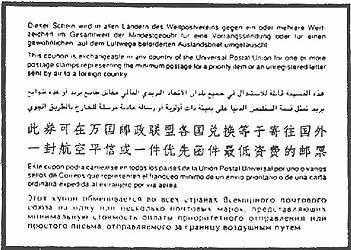 Dieser Schein wird in allen Ländern des Weltpostvereins gegen ein oder mehrere Wert-
zeichen im Gesamtwert der Mindestgebühr für eine Vorrangsendung oder für einen
gewöhnlichen auf dem Luftwege beförderten Auslandsbrief umgetauscht
This coupon is exchangeable in any country of the Universal Postal Union for one or more
postage stamps representing the minimum postage for a priority item or an unregistered letter
sent by air to a foreign country
هذه القسيمة قابلة للاستبدال في جميع بلدان الاتحاد البريدي العالمي مقابل طابع بريد أو عدة طوابع
بريد تمثل قيمة التخليص الدنيا على بعيثة ذات أولوية أو رسالة عادية مرسلة للخارج بالطريق الجوي
此券可在万国邮政联盟各国兑换等于寄往国外
一封航空平信或一件优先函件最低资费的邮票
Este cupón podrá canjearse en todos los países de la Unión Postal Universal por uno o varios
sellos de Correos que representen el franqueo mínimo de un envío prioritario o de una carta
ordinaria expedida al extranjero por vía aérea
Этот купон обменивается во всех странах Всемирного почтового
союза на одну или несколько почтовых марок, представляющих
минимальную стоимость оплаты приоритетного отправления или
простого письма, отправляемого за границу воздушным путем